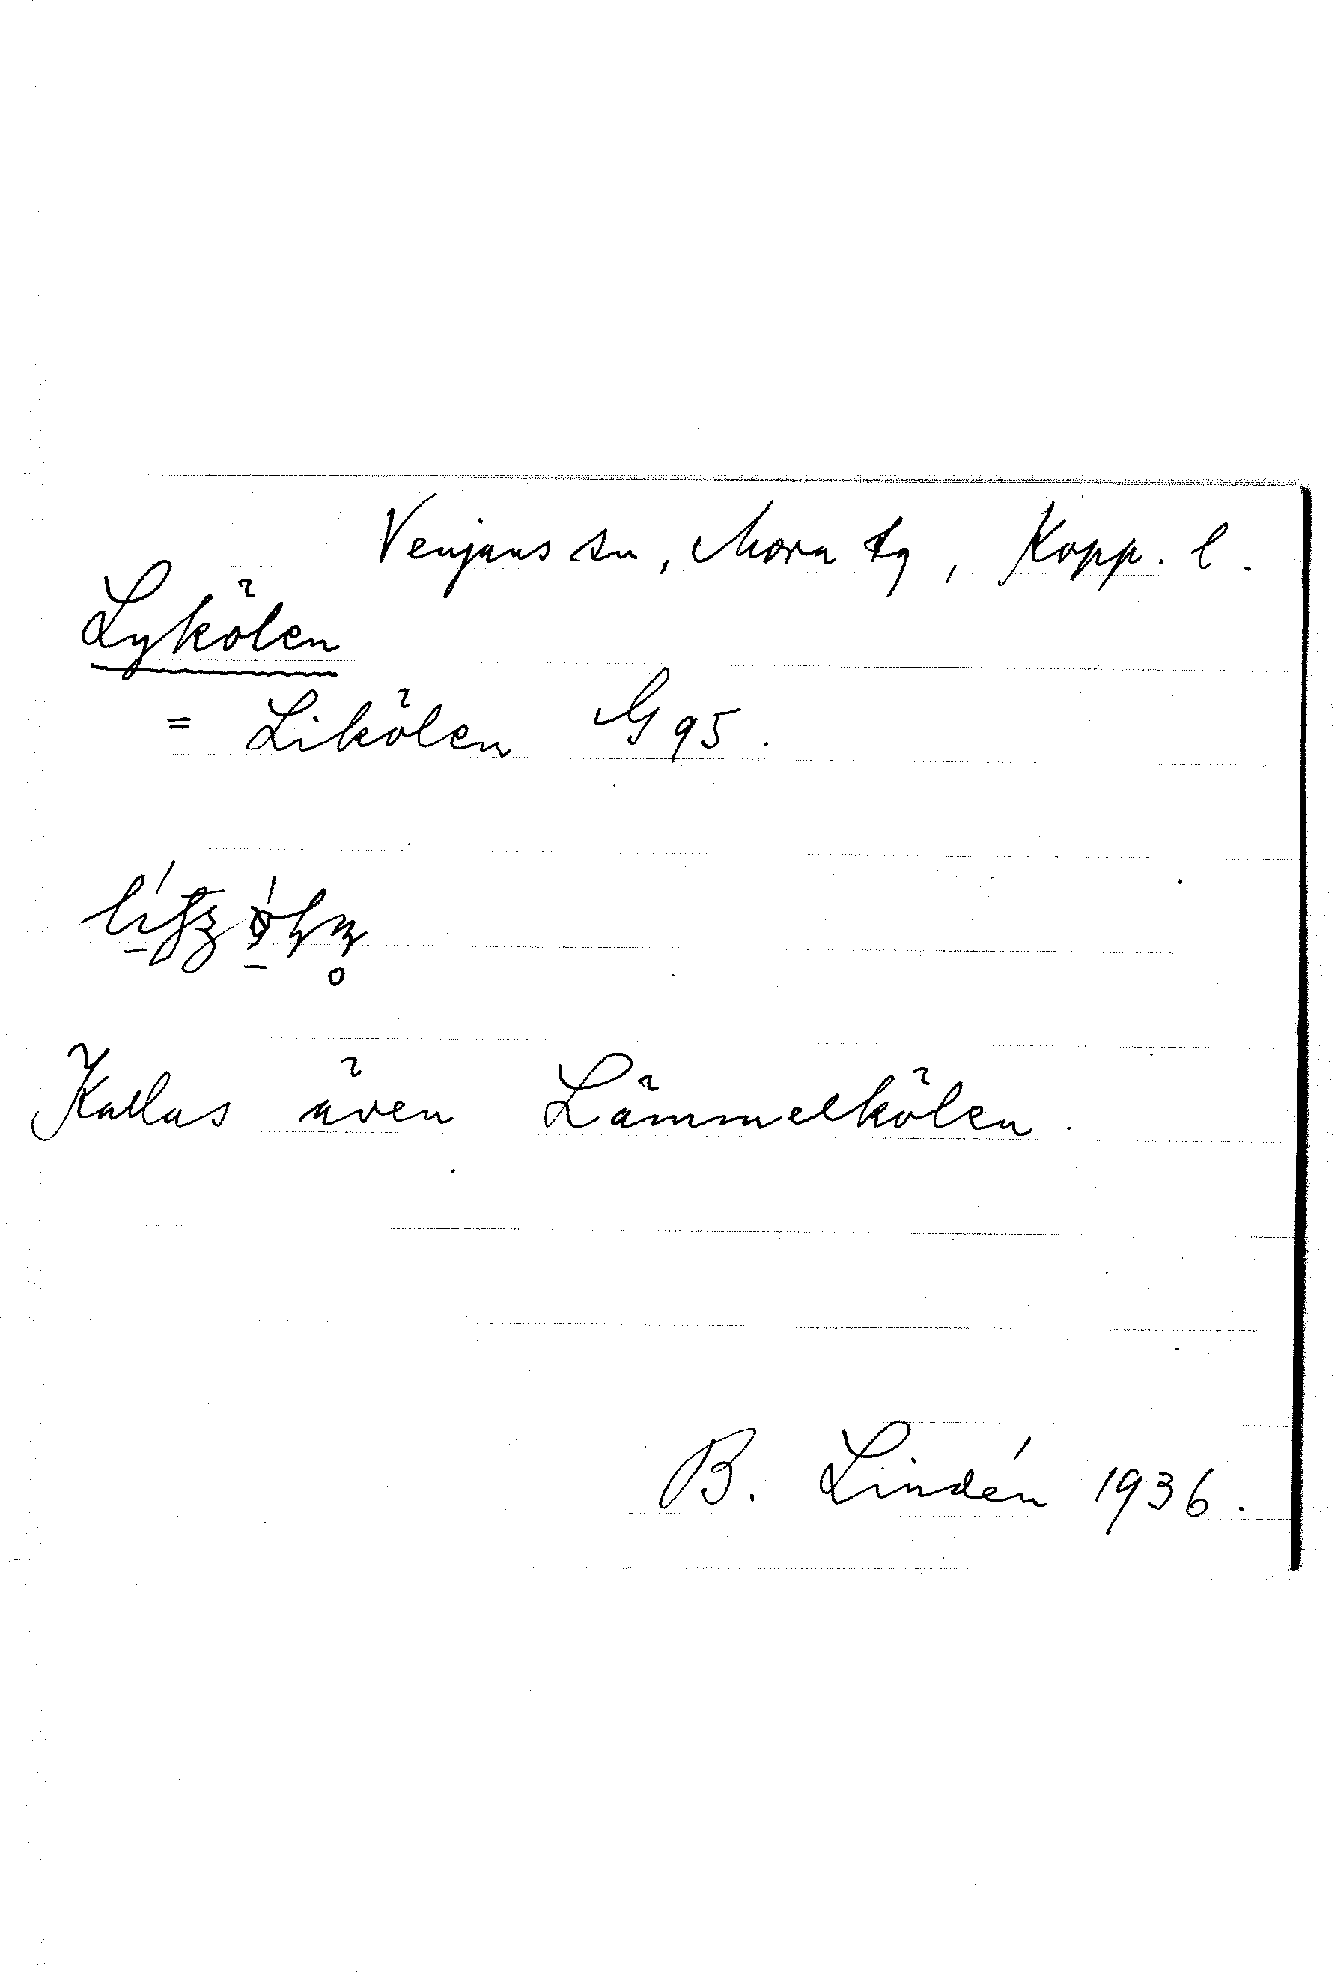 Venjans sn, Mora tg, Kopp. l.
Lykölen
= Likölen G 95.
Kallas även Lämmelkölen.
B. Lindén 1936.